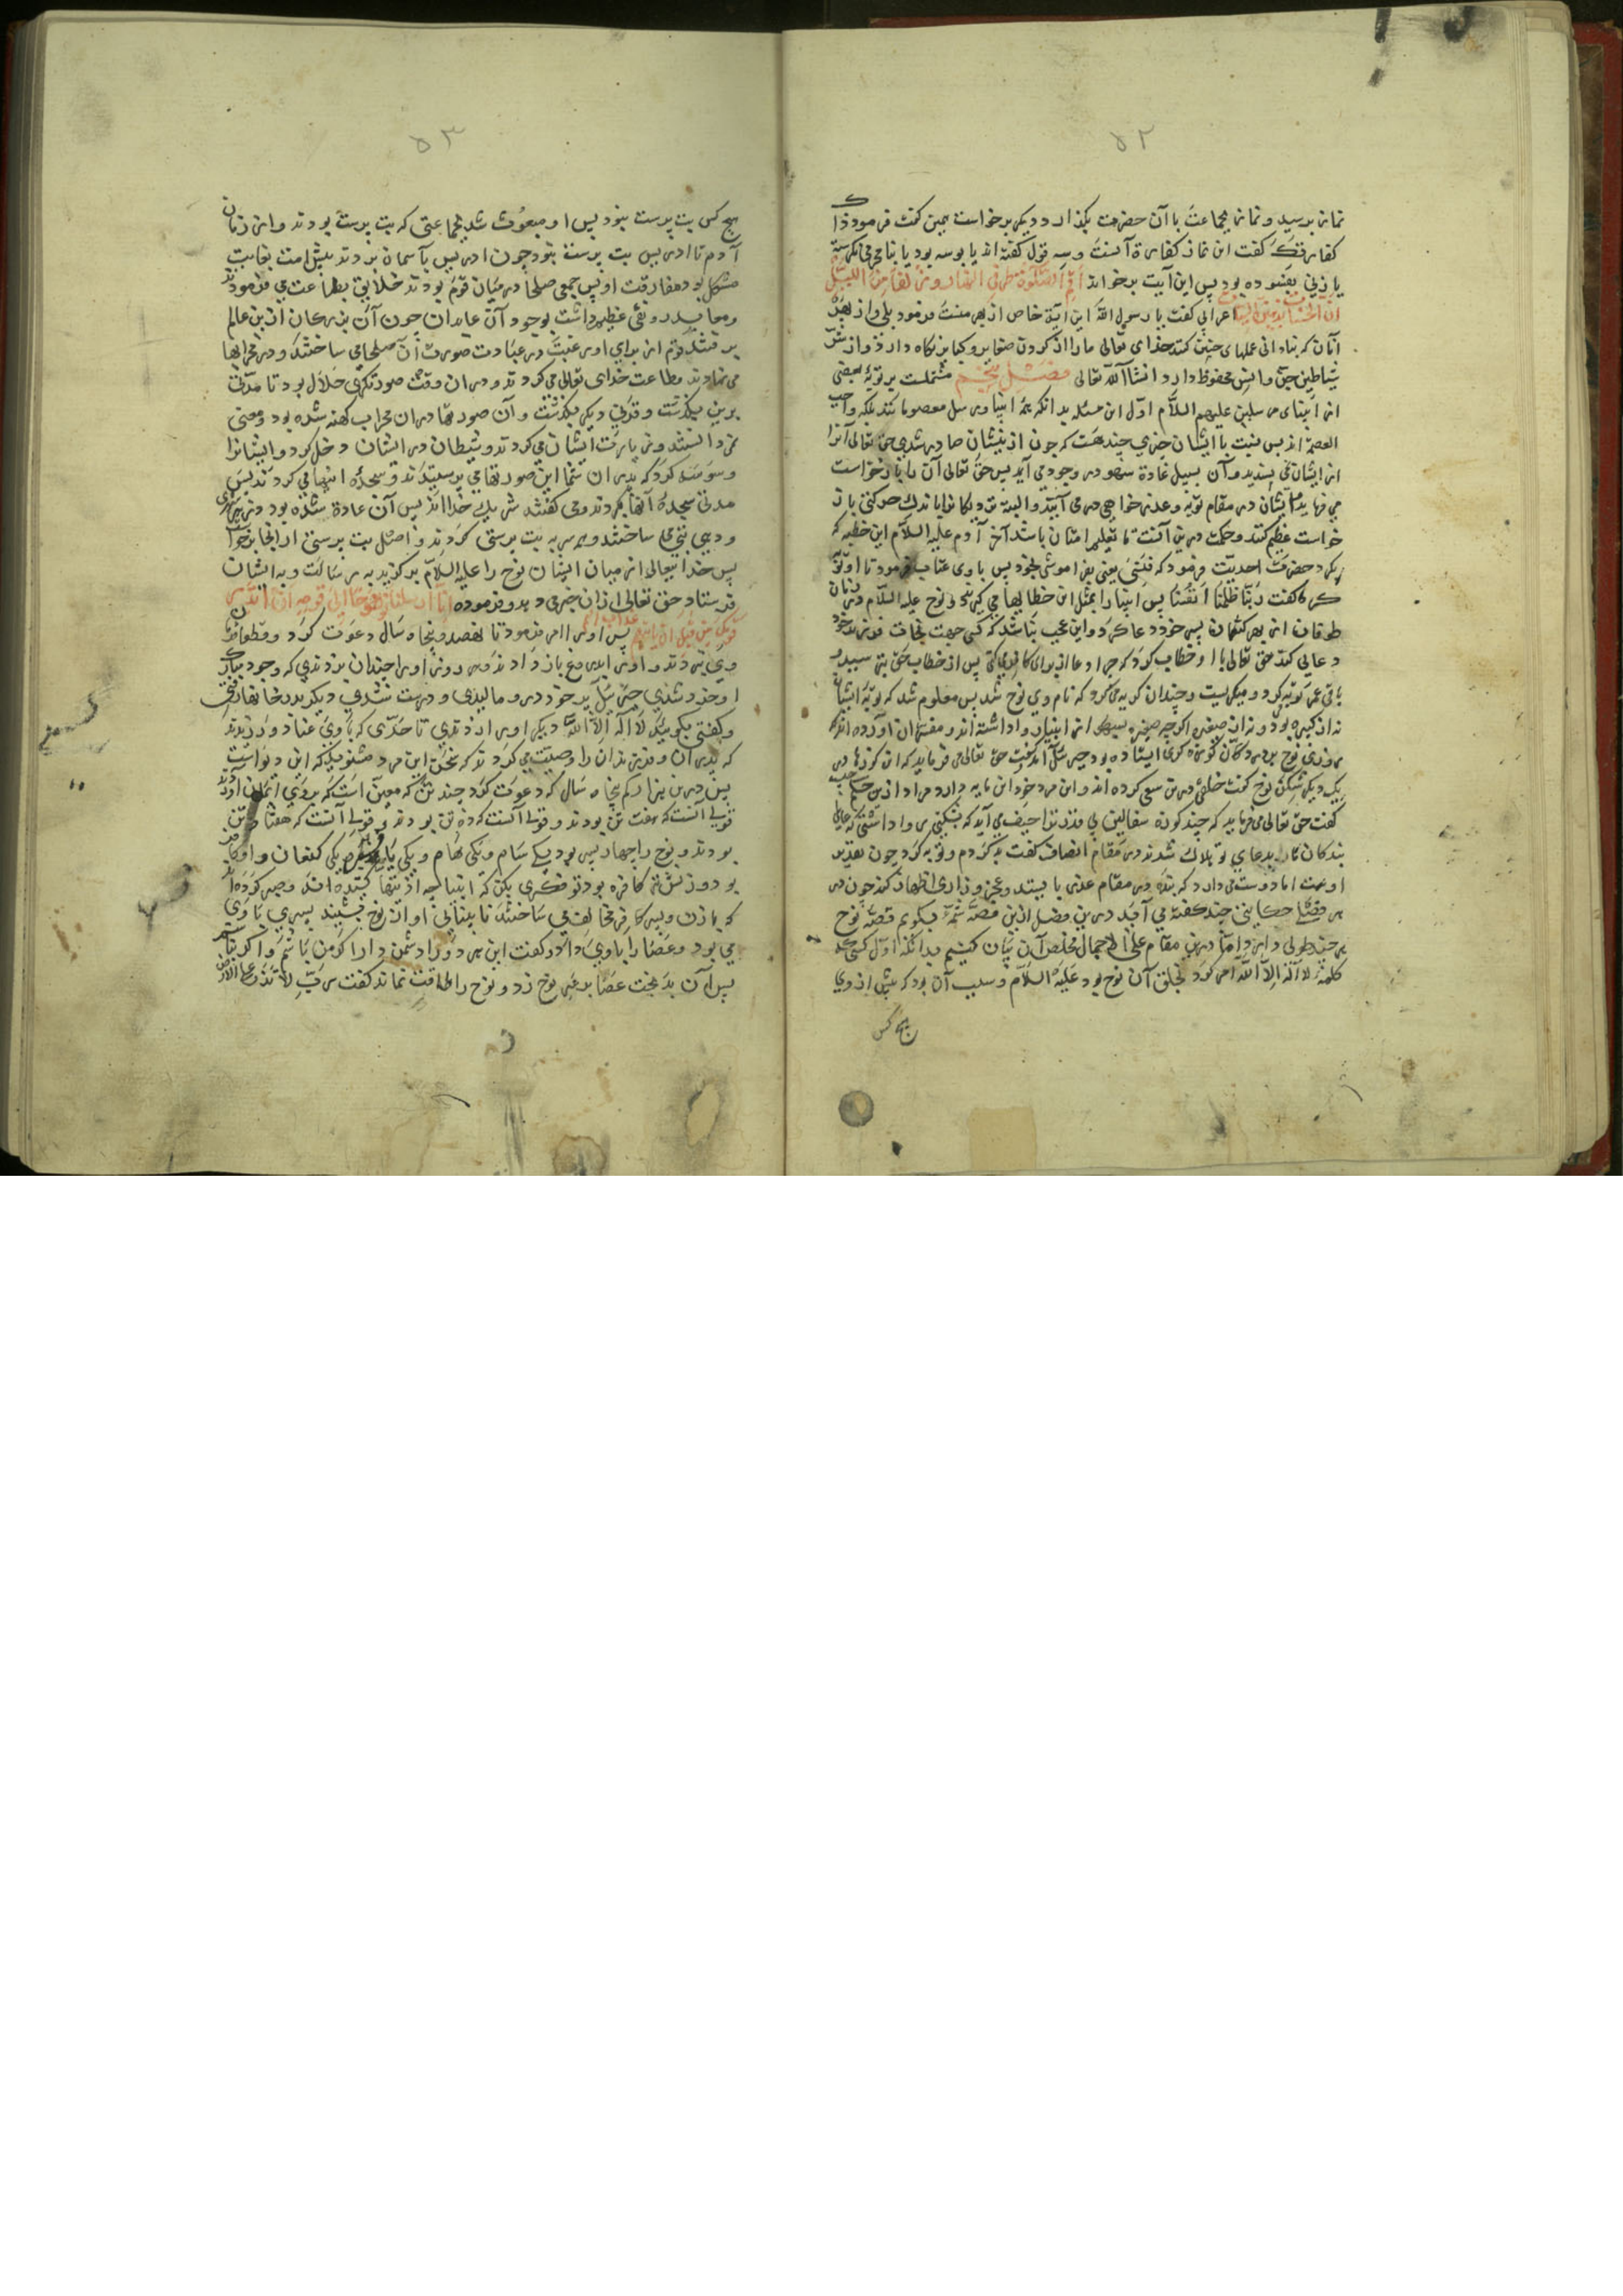 ۵۲
نماز برسید و نماز بجماعت با آن حضرت بگذارد دیگر برخواست همین گفت فرمود ترا
کفارتک گفت این نماز کفارة آنست و سه قول گفته اند یا بوسه بود یا
یا زنی بود پس این آیت برخواند اقم الصلوة طرفی النهار و زلفا من اللیل
ان الحسنات یذهبن السیئات اعرابی گفت یا رسول الله این آیة خاص از بهر منست فرمود بلی و از بهر
آنان که بنادانی عملهای چنین کنند خدای تعالی ما را از کردن صغایر و کبایر نگاه دارد و از شر
شیاطین جن و انس محفوظ دارد انشاالله تعالی فصل پنجم مشتملست بر توبۀ بعضی
از انبیای مرسلین علیهم السلام اول این مسئله بدانکه همۀ انبیا و رسل معصومانند بلکه واجب
العصمة اند پس نسبت با ایشان چیزی چند هست که چون از ایشان صادر شدی حق تعالی آنرا
از ایشان نمی پسندید و آن بسبیل عادة سهو در وجود می آید پس حق تعالی آن را باز خواست
می فرماید تا ایشان در مقام توبه و عذر خواهی در می آیند و البته نزدیکانرا باندک حرکتی باز
خواست عظیم کنند و حکمت درین آنست تا تعلیم امتان باشد آخر آدم علیه السلام این خطیه که
بکرد حضرت احدیت فرمود که فنسی یعنی بفراموشی بخورد پس با وی عتاب فرمود تا او توبه
کرد گفت ربنا ظلمنا انفسنا پس انبیا را بمثل این خطایها می گیرند و نوح علیه السلام در زمان
طوفان از بهر کنعان پسر خود دعا کرد و این عجب نباشد که کسی جهت نجات فرزند خود
دعایی کند حق تعالی با او خطاب کرد که چرا دعا از برای کافری می کنی پس از خطاب حق
باقی عمر توبه کرد و میگریست و چندان گریه می کرد که نام وی نوح شد پس معلوم شد که توبۀ ایشان
نه از کبیره بود و نه از صغیره اگرچه صغیره از انبیا روا داشته اند و مفسران آورده اند که
روزی نوح بر در دکان کوزه گری ایستاده بود جبرئیل آمد گفت حق تعالی می فرماید که این کوزها را
یک دیگر شکن نوح گفت خلقی درین سعی کرده اند و این مرد خود این مایه دارد مراد ازین چیست
گفت حق تعالی می فرماید که چند کوزه سفالین بی قدر ترا حیف می آید که بشکنی روا داشتی که عالمی
بندگان ما را بدعای تو هلاک شدند در مقام انصاف گفت بد کردم و توبه کرد چون تقدیر
اوست اما دوست می دارد که بنده در مقام عذر بایستد و عجز و زاری اظهار کند چون در
هر فصلی حکایتی چند گفته می آید درین فصل ازین قصۀ شمۀ میگویم قصۀ نوح
هر چند طولی دارد اما درین مقام علی الاجمال مخلص آن بیان کنیم بدانکه اول کسی که
کلمۀ لا اله الا الله امر کرد بخلق آن نوح بود علیه السلام و سبب آن بود که پیش از وی
هیچ کس
۵۳
هیچ کس بت پرست نبود پس او مبعوث شد بجماعتی که بت پرست بودند و از زمان
آدم تا ادریس بت پرست نبود چون ادریس بآسمان بردند پیش امت بغایت
مشکل بود مفارقت او پس جمعی صلحا در میان قوم بودند خلایق بطاعت می فرمودند
و معابد رونقی عظیم داشت بوجود آن عابدان چون آن بزرگان ازین عالم
برفتند قوم از برای رغبت در عبادت صورت آن صلحا می ساختند و در محرابها
می نهادند و طاعت خدای تعالی می کردند و در آن وقت صورتگری حلال بود تا مدتی
برین بگذشت و قرنی دیگر بگذشت و آن صورتها در آن محراب کهنه شده بود و معنی
نمی دانستند و زیارت ایشان می کردند و شیطان در ایشان دخل کرد و ایشانرا
وسوسه کرد که پدران شما این صورتها می پرستیدند و سجدۀ اینها می کردند پس
مدتی سجدۀ آنها کردند و می گفتند شریک خدا اند پس آن عادة شده بود و در هر شهری
و دیهی بتی می ساختند و همه بت پرستی کردند و اصل بت پرستی از آنجا برخواست
پس خدای تعالی از میان ایشان نوح را علیه السلام برگزید برسالت و به ایشان
فرستاد حق تعالی از آن خبر می دهد و فرموده انا ارسلنا نوحا الی قومه ان انذر
قومک من قبل ان یاتیهم عذاب الیم پس او را امر فرمود تا نهصد و پنجاه سال دعوت کرد و قطعا
و او را چندان بزدندی که وجود مبارک
او خرد شدی جبرئیل پر خود در وی مالیدی و درست شدی دیگر بدر خانها رفتی
و گفتی بگویید لا اله الا الله دیگر او را زدندی تا حدی که با وی عناد ورزیدند
که پدران فرزندان را وصیت می کردند که سخن این مرد مشنوید که این دیوانست
پس درین هزار کم پنجاه سال که دعوت کرد چند تن که معین است که بوی ایمان آوردند
قولی آنست که هفت تن بودند و قولی آنست که ده تن بودند و قولی آنست که هفتاد تن
بودند و نوح را چهار پسر بود یکی سام و یکی حام و یکی یافث و یکی کنعان و او کافر
بود و زنش نیز کافره بود تو فکری بکن که انبیا چه ازینها کشیده اند و صبر کرده اند
که با زن و پسر کافر مخالف می ساختند نابینایی او از نوح بشنید پسری با وی
می بود و عصا را با وی داد و گفت این مرد ورا دشمن دار اگر من باشم و اگر نباشم
پس آن بدبخت عصا بر سر نوح زد و نوح را طاقت نماند گفت رب لا تذر علی الارض